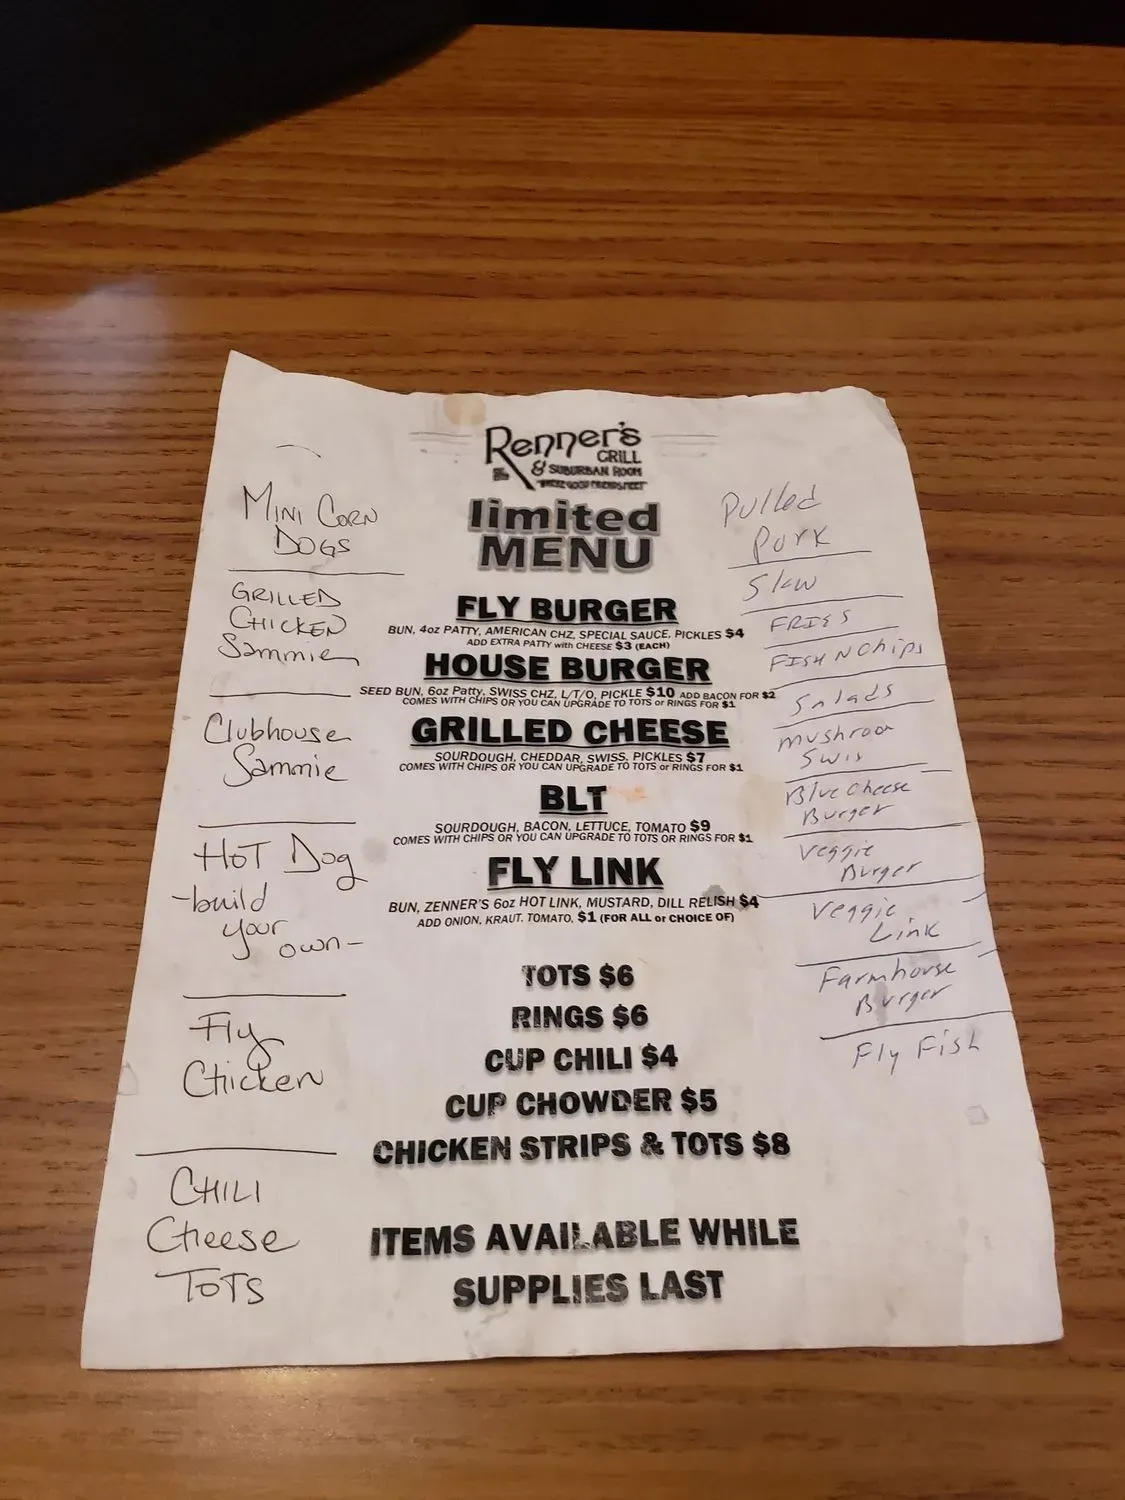 Renner's
GRILL
& SUBURBAN ROOM
"WHERE GOOD FRIENDS MEET"
limited
MENU
FLY BURGER
BUN, 4oz PATTY, AMERICAN CHZ, SPECIAL SAUCE, PICKLES $4
ADD EXTRA PATTY with CHEESE $3 (EACH)
HOUSE BURGER
SEED BUN, 6oz Patty, SWISS CHZ, L/T/O, PICKLE $10 ADD BACON FOR $2
COMES WITH CHIPS OR YOU CAN UPGRADE TO TOTS or RINGS FOR $1
GRILLED CHEESE
SOURDOUGH, CHEDDAR, SWISS, PICKLES $7
COMES WITH CHIPS OR YOU CAN UPGRADE TO TOTS or RINGS FOR $1
BLT
SOURDOUGH, BACON, LETTUCE, TOMATO $9
COMES WITH CHIPS OR YOU CAN UPGRADE TO TOTS OR RINGS FOR $1
FLY LINK
BUN, ZENNER'S 6oz HOT LINK, MUSTARD, DILL RELISH $4
ADD ONION, KRAUT, TOMATO, $1 (FOR ALL or CHOICE OF)
TOTS $6
RINGS $6
CUP CHILI $4
CUP CHOWDER $5
CHICKEN STRIPS & TOTS $8
ITEMS AVAILABLE WHILE
SUPPLIES LAST
MINI CORN
DOGS
GRILLED
CHICKEN
Sammie
Clubhouse
Sammie
HOT Dog
-build
your
own-
Fly
Chicken
CHILI
Cheese
TOTS
Pulled
Pork
Slaw
FRIES
FISH N Chips
Salads
Mushroom
Swis
Blue Cheese
Burger
Veggie
Burger
Veggie
Link
Farmhouse
Burger
Fly Fish